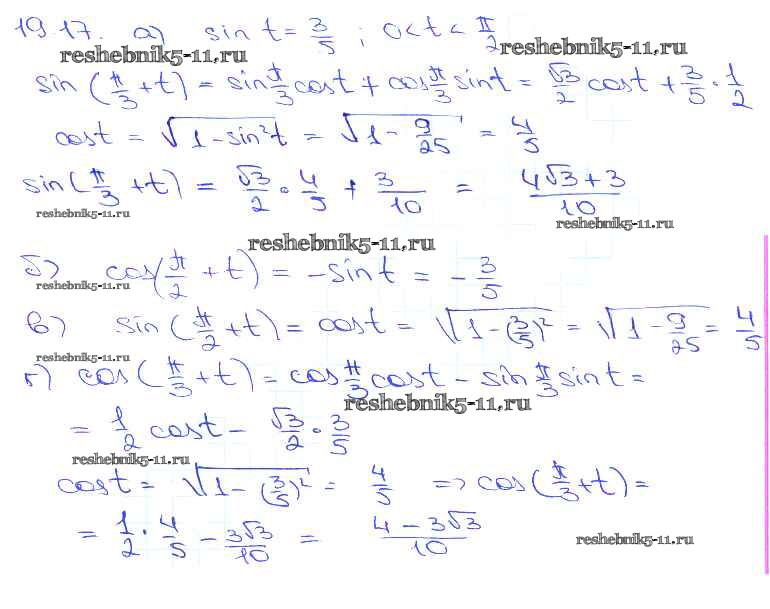 19.17. а) sin t = 3/5 ; 0 < t < π/2
reshebnik5-11.ru reshebnik5-11.ru
sin(π/3 + t) = sin π/3 cos t + cos π/3 sin t = √3/2 cos t + 3/5 · 1/2
cos t = √(1 - sin²t) = √(1 - 9/25) = 4/5
sin(π/3 + t) = √3/2 · 4/5 + 3/10 = (4√3 + 3)/10
reshebnik5-11.ru reshebnik5-11.ru
reshebnik5-11.ru
б) cos(π/2 + t) = -sin t = -3/5
reshebnik5-11.ru
в) sin(π/2 + t) = cos t = √(1 - (3/5)²) = √(1 - 9/25) = 4/5
reshebnik5-11.ru
г) cos(π/3 + t) = cos π/3 cos t - sin π/3 sin t =
reshebnik5-11.ru
= 1/2 cos t - √3/2 · 3/5
reshebnik5-11.ru
cos t = √(1 - (3/5)²) = 4/5 => cos(π/3 + t) =
= 1/2 · 4/5 - 3√3/10 = (4 - 3√3)/10
reshebnik5-11.ru